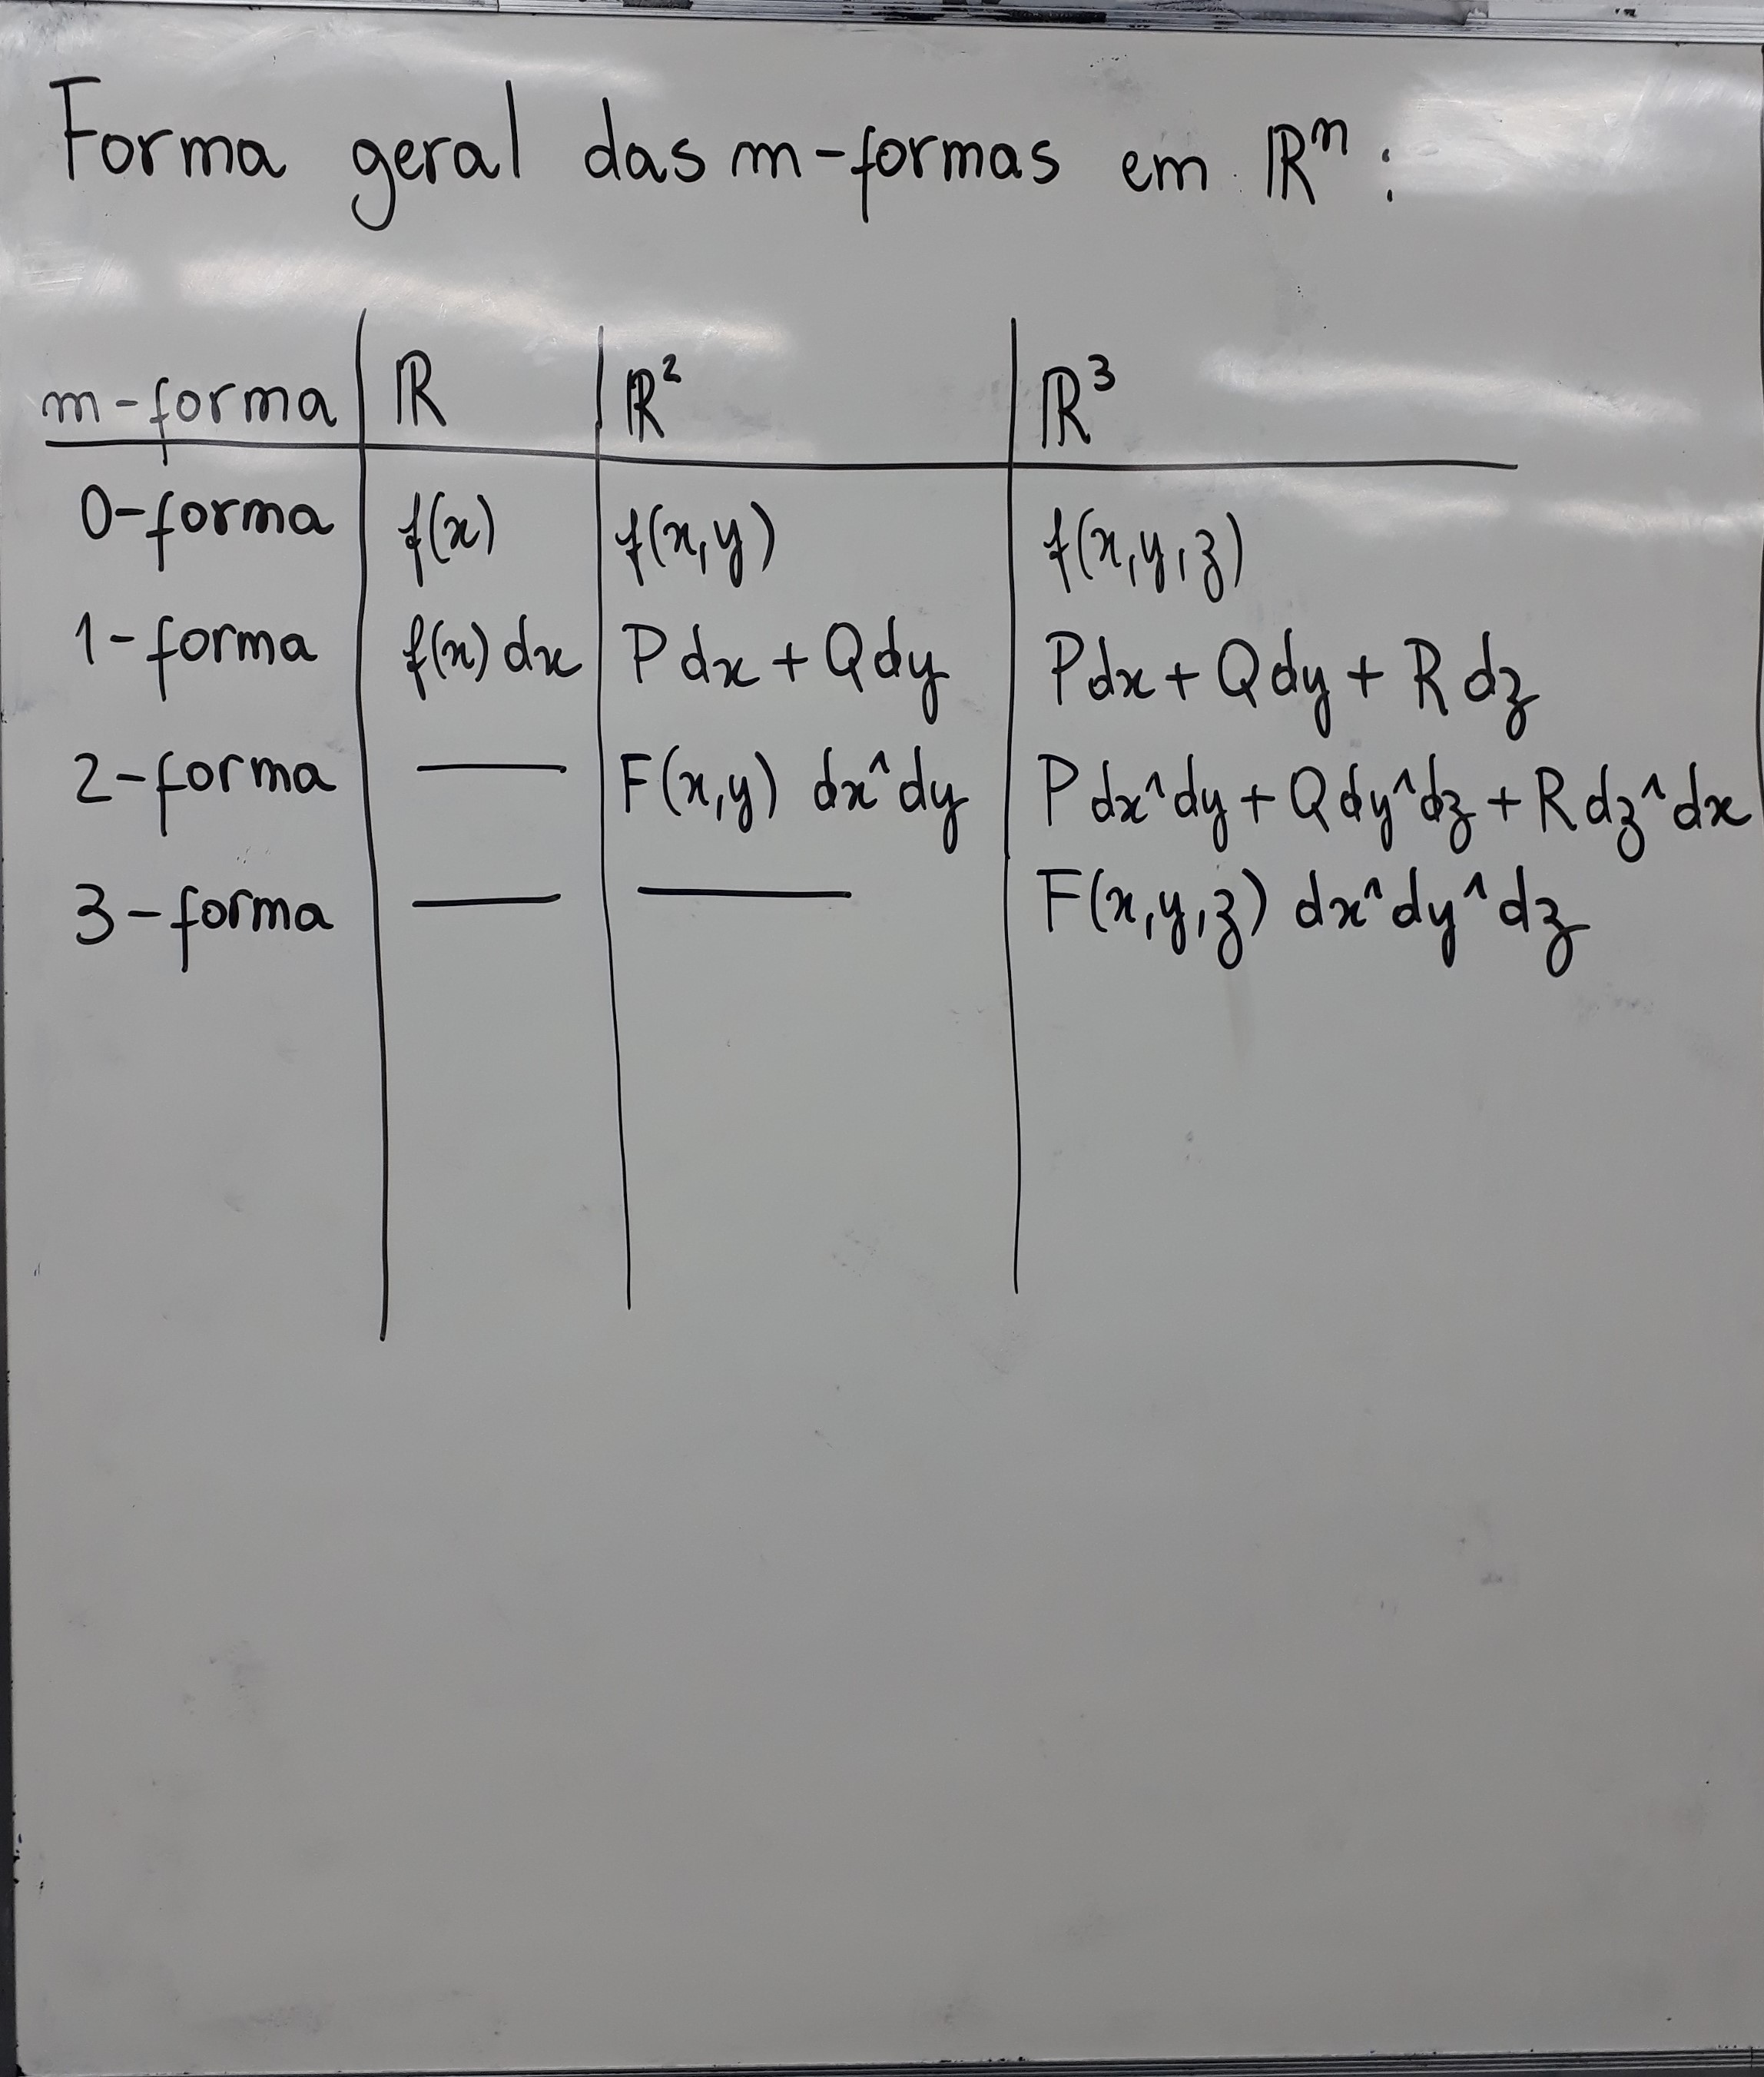 Forma geral das m-formas em ℝⁿ:
m-forma ℝ ℝ² ℝ³
0-forma f(x) f(x,y) f(x,y,z)
1-forma f(x) dx P dx + Q dy P dx + Q dy + R dz
2-forma — F(x,y) dx^dy P dx^dy + Q dy^dz + R dz^dx
3-forma — — F(x,y,z) dx^dy^dz